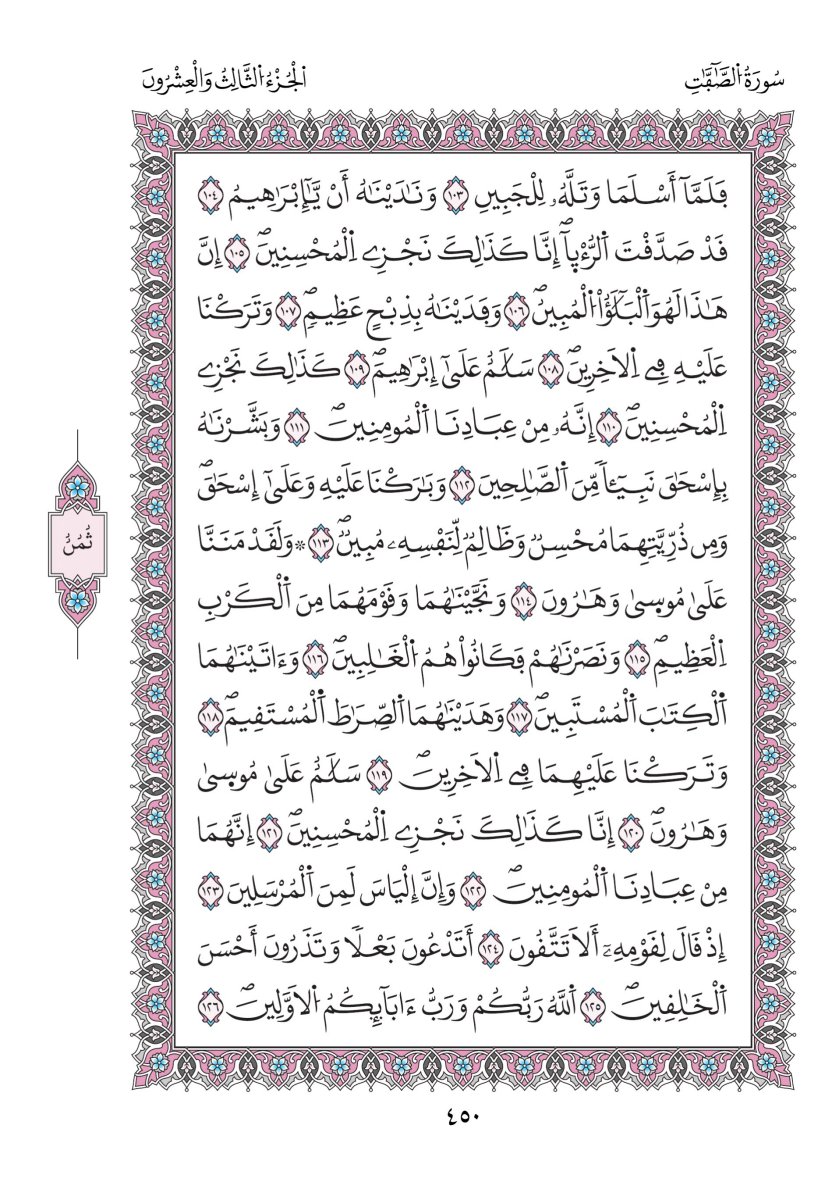 سُورَةُ اُ۬لصَّٰٓفَّٰتِ
اَ۬لْجُزْءُ اُ۬لثَّالِثُ وَالْعِشْرُونَ
فَلَمَّآ أَسْلَمَا وَتَلَّهُۥ لِلْجَبِينِ ١٠٣ وَنَٰدَيْنَٰهُ أَنْ يَّٰٓإِبْرَٰهِيمُ ١٠٤
قَدْ صَدَّقْتَ اَ۬لرُّءْي۪آۖ إِنَّا كَذَٰلِكَ نَجْزِے اِ۬لْمُحْسِنِينَۖ ١٠٥ إِنَّ
هَٰذَا لَهُوَ اَ۬لْبَلَٰٓؤُاْ اُ۬لْمُبِينُۖ ١٠٦ وَفَدَيْنَٰهُ بِذِبْحٍ عَظِيمٖۖ ١٠٧ وَتَرَكْنَا
عَلَيْهِ فِے اِ۬لَاخِرِينَۖ ١٠٨ سَلَٰمٌ عَلَىٰٓ إِبْرَٰهِيمَۖ ١٠٩ كَذَٰلِكَ نَجْزِے
اِ۬لْمُحْسِنِينَۖ ١١٠ إِنَّهُۥ مِنْ عِبَادِنَا اَ۬لْمُومِنِينَۖ ١١١ وَبَشَّرْنَٰهُ
بِإِسْحَٰقَ نَبِيٓـٔاٗ مِّنَ اَ۬لصَّٰلِحِينَ ١١٢ وَبَٰرَكْنَا عَلَيْهِ وَعَلَىٰٓ إِسْحَٰقَۖ
وَمِن ذُرِّيَّتِهِمَا مُحْسِنٞ وَظَالِمٞ لِّنَفْسِهِۦ مُبِينٞۖ ١١٣ ۞وَلَقَدْ مَنَنَّا
عَلَىٰ مُوس۪ىٰ وَهَٰرُونَ ١١٤ وَنَجَّيْنَٰهُمَا وَقَوْمَهُمَا مِنَ اَ۬لْكَرْبِ
اِ۬لْعَظِيمِۖ ١١٥ وَنَصَرْنَٰهُمْ فَكَانُواْ هُمُ اُ۬لْغَٰلِبِينَۖ ١١٦ وَءَاتَيْنَٰهُمَا
اَ۬لْكِتَٰبَ اَ۬لْمُسْتَبِينَۖ ١١٧ وَهَدَيْنَٰهُمَا اَ۬لصِّرَٰطَ اَ۬لْمُسْتَقِيمَۖ ١١٨
وَتَرَكْنَا عَلَيْهِمَا فِے اِ۬لَاخِرِينَۖ ١١٩ سَلَٰمٌ عَلَىٰ مُوس۪ىٰ
وَهَٰرُونَۖ ١٢٠ إِنَّا كَذَٰلِكَ نَجْزِے اِ۬لْمُحْسِنِينَۖ ١٢١ إِنَّهُمَا
مِنْ عِبَادِنَا اَ۬لْمُومِنِينَۖ ١٢٢ وَإِنَّ إِلْيَاسَ لَمِنَ اَ۬لْمُرْسَلِينَ ١٢٣
إِذْ قَالَ لِقَوْمِهِۦٓ أَلَا تَتَّقُونَ ١٢٤ أَتَدْعُونَ بَعْلاٗ وَتَذَرُونَ أَحْسَنَ
اَ۬لْخَٰلِقِينَۖ ١٢٥ اَ۬للَّهُ رَبُّكُمْ وَرَبُّ ءَابَآئِكُمُ اُ۬لَاوَّلِينَۖ ١٢٦
ثُمُنُ
٤٥٠